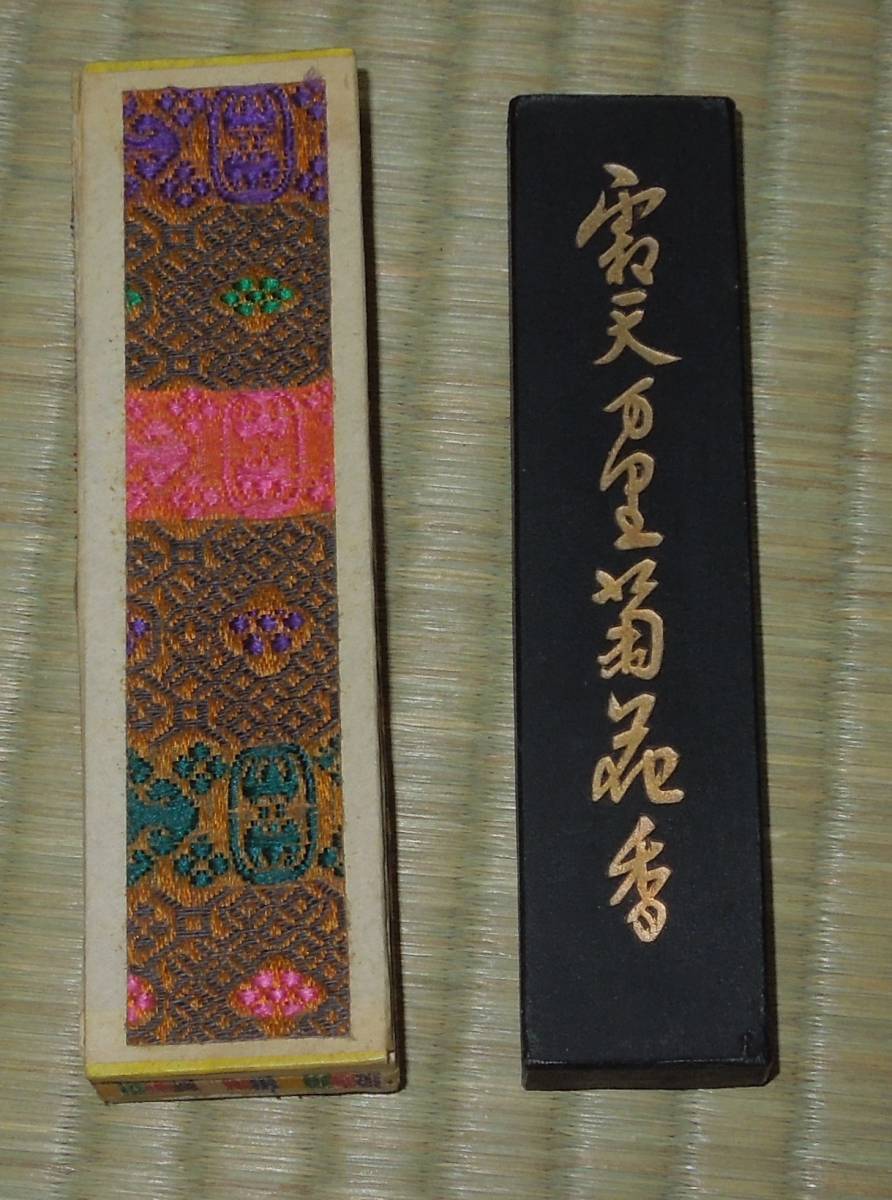 霜天万里菊花香